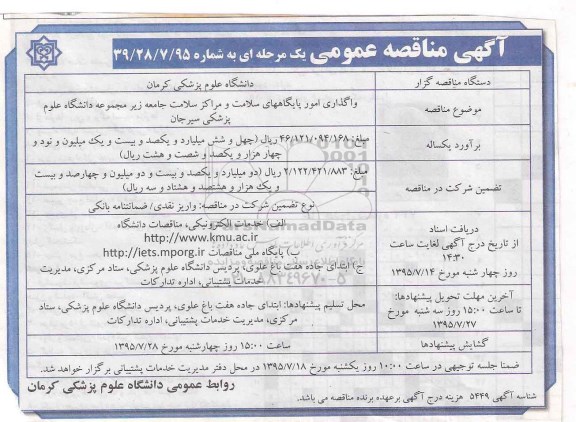 آگهی مناقصه عمومی یک مرحله ای به شماره ۳۹/۲۸/۷/۹۵
دستگاه مناقصه گزار
دانشگاه علوم پزشکی کرمان
موضوع مناقصه
واگذاری امور پایگاههای سلامت و مراکز سلامت جامعه زیر مجموعه دانشگاه علوم
پزشکی سیرجان
برآورد یکساله
مبلغ: ۴۶/۱۲۱/۰۹۴/۱۶۸ ریال (چهل و شش میلیارد و یکصد و بیست و یک میلیون و نود و
چهار هزار و یکصد و شصت و هشت ریال)
تضمین شرکت در مناقصه
مبلغ: ۲/۱۲۲/۴۲۱/۸۸۳ ریال (دو میلیارد و یکصد و بیست و دو میلیون و چهارصد و بیست
و یک هزار و هشتصد و هشتاد و سه ریال)
نوع تضمین شرکت در مناقصه: واریز نقدی/ ضمانتنامه بانکی
دریافت اسناد
از تاریخ درج آگهی لغایت ساعت
۱۴:۳۰
روز چهار شنبه مورخ ۱۳۹۵/۷/۱۴
الف) خدمات الکترونیکی، مناقصات دانشگاه
http://www.kmu.ac.ir
ب) پایگاه ملی مناقصات http://iets.mporg.ir
ج) ابتدای جاده هفت باغ علوی، پردیس دانشگاه علوم پزشکی، ستاد مرکزی، مدیریت
خدمات پشتیبانی، اداره تدارکات
آخرین مهلت تحویل پیشنهادها:
تا ساعت ۱۵:۰۰ روز سه شنبه مورخ
۱۳۹۵/۷/۲۷
محل تسلیم پیشنهادها: ابتدای جاده هفت باغ علوی، پردیس دانشگاه علوم پزشکی، ستاد
مرکزی، مدیریت خدمات پشتیبانی، اداره تدارکات
گشایش پیشنهادها
ساعت ۱۵:۰۰ روز چهارشنبه مورخ ۱۳۹۵/۷/۲۸
ضمنا جلسه توجیهی در ساعت ۱۰:۰۰ روز یکشنبه مورخ ۱۳۹۵/۷/۱۸ در محل دفتر مدیریت خدمات پشتیبانی برگزار خواهد شد.
شناسه آگهی ۵۴۴۹ هزینه درج آگهی برعهده برنده مناقصه می باشد.
روابط عمومی دانشگاه علوم پزشکی کرمان
ParsNamadData